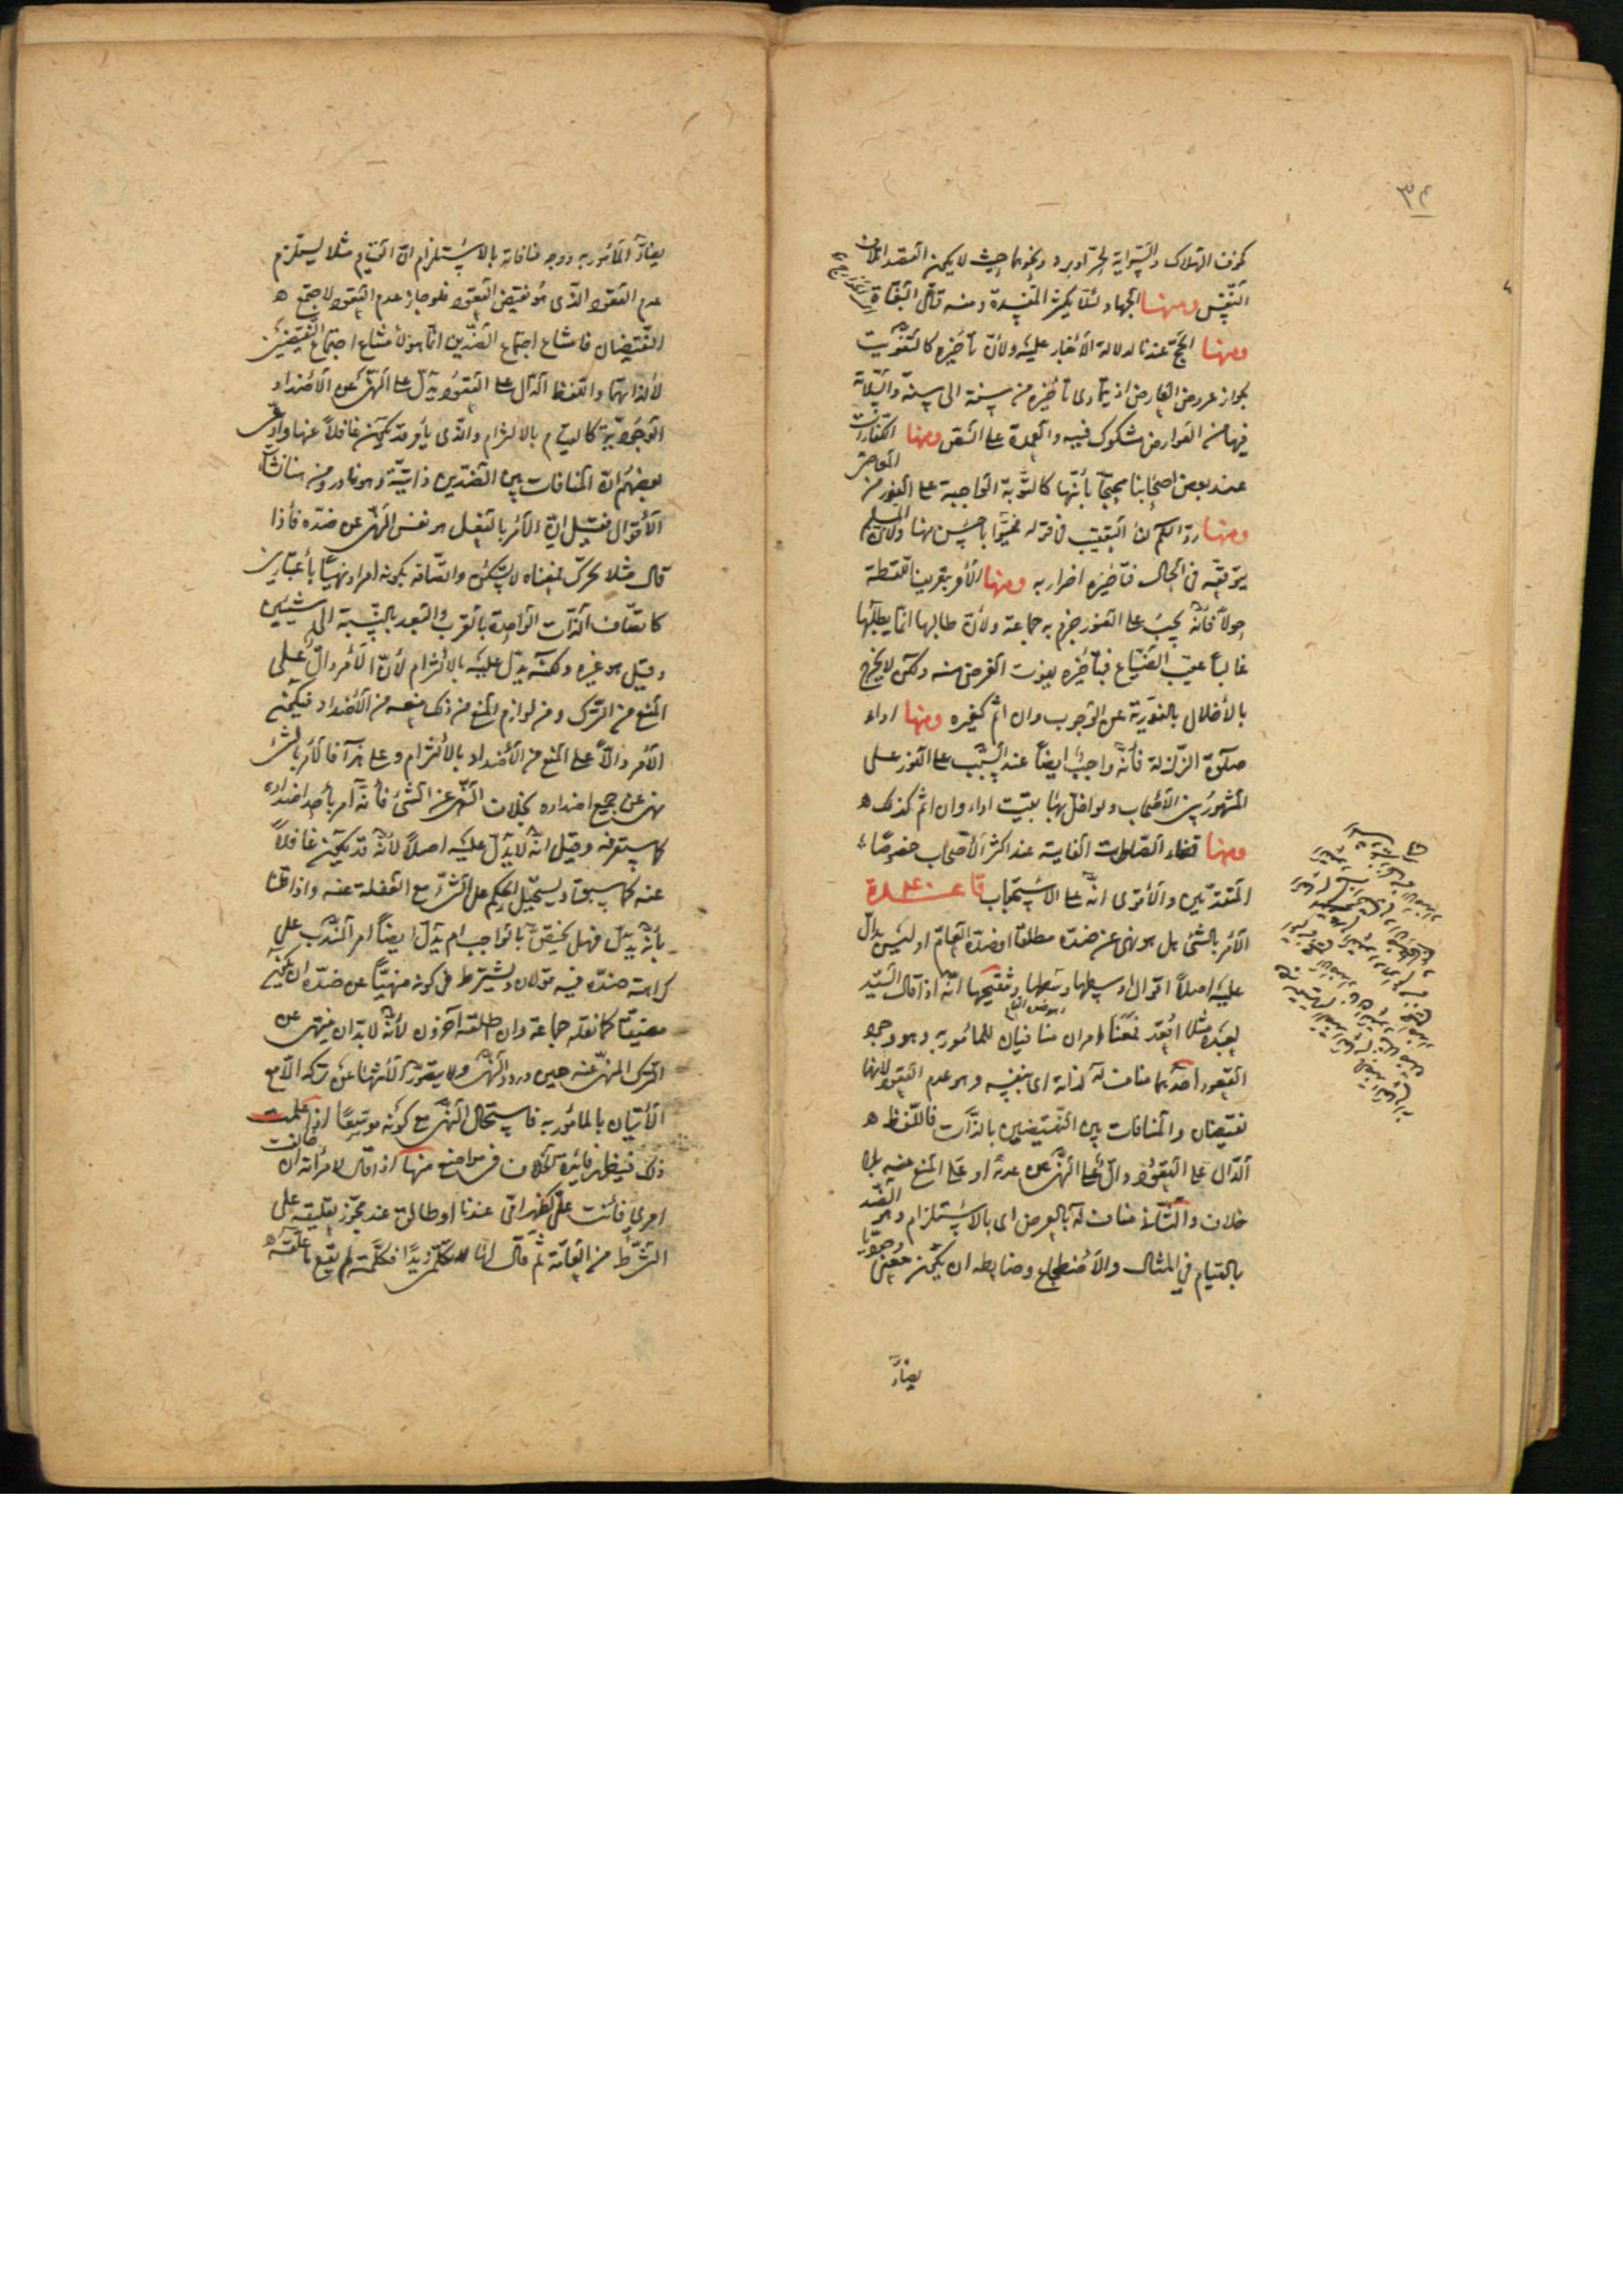 ٣٤
كخوف الهلاك والسراية لحرّ او برد ونحوهما حيث لا يمكن القصد لتلاف
النفس ومنها الجهاد لئلا يكثر المفسدة ومنه قتال البغاة
ومنها الحج عندنا لدلالة الأخبار عليه ولأن تأخيره كالتفويت
بجواز عروض العارض اذ يتمادى تأخيره من سنة الى سنة والسلامة
فيها من العوارض مشكوك فيه والعمدة على النص ومنها الكفارات
عند بعض اصحابنا محتجا بأنها كالتوبة الواجبة على الفور من المعاصي
ومنها ردّ السلام لان التعقيب في قوله فحيّوا باحسن منها ولان المسلم
يتوقعه في الحال فتأخيره اضرار به ومنها الأمر بتعريف اللقطة
حولا فانه يجب على الفور جزم به جماعة ولأن طالبها انما يطلبها
غالبا عقيب الضياع فبتأخيره يفوت الغرض منه ولكن لا يخرج
بالأخلال بالفورية عن الوجوب وان اثم كغيره ومنها اداء
صلوة الزلزلة فانه واجب ايضا عند السبب على الفور على
المشهور بين الأصحاب ولو اخل بها بقيت اداء وان اثم كذلك
ومنها قضاء الصلوات الفايتة عند اكثر الأصحاب خصوصا
المتقدمين والأقوى انه على الاستحباب قاعدة
الأمر بالشئ هل هو نهى عن ضده مطلقا او ضده العام او ليس بدال
عليه اصلا اقوال اوسطها وسطها وتنقيحها انه اذا قال السيد
لعبده مثلا اقعد فمعنا امران منافيان للمأمور به وهو وجود
القعود احدهما مناف له لذاته اى بنفسه وهو عدم القعود لانهما
نقيضان والمنافات بين النقيضين بالذات فاللفظ
الدال على القعود دال على النهى عن عدمه او على المنع عنه بلا
خلاف والثانى مناف له بالعرض اى بالاستلزام وهو الضد
بالقيام في المثال والأضطجاع وضابطه ان يكون معنى وجوديا
يضاد
يضاد المأمور به ووجه منافاته بالاستلزام ان القيام مثلا يستلزم
عدم القعود الذى هو نقيض القعود فلو جاز عدم القعود لاجتمع
النقيضان فامتناع اجتماع الضدين انما هو لأمتناع اجتماع النقيضين
لا لذاتهما واللفظ الدال على القعود يدل على النهى عن الأضداد
الوجودية كالقيام بالالتزام والذى يأمر قد يكون غافلا عنها وادعى
بعضهم ان المنافات بين الضدين ذاتية وهو نادر ومن هنا نشأ
الأقوال فقيل ان الأمر بالفعل هو نفس النهى عن ضده فأذا
قال مثلا تحرك فمعناه لا تسكن واتصافه بكونه امرا ونهيا بأعتبارين
كاتصاف الذات الواحدة بالقرب والبعد بالنسبة الى شيئين
وقيل هو غيره ولكنه يدل عليه بالألتزام لأن الأمر دال على
المنع من الترك ومن لوازم المنع من ذلك منعه من الأضداد فيكون
الأمر دالا على المنع من الأضداد بالألتزام وعلى هذا فالأمر بالشئ
نهى عن جميع اضداده بخلاف النهى عن الشئ فأنه امر بأحد اضداده
كما ستعرفه وقيل انه لا يدل عليه اصلا لأنه قد يكون غافلا
عنه كما سبق ويستحيل الحكم على الشئ مع الغفلة عنه واذا قلنا
بأنه يدل فهل يختص بالواجب ام يدل ايضا امر الندب على
كراهة ضده فيه قولان ويشترط في كونه منهيا عن ضده ان يكون
مضيقا كما نقله جماعة وان اطلقه آخرون لأنه لا بد ان ينتهى عن
الترك المنهى عنه حين ورود النهى ولا يتصور الأنتهاء عن تركه الا مع
الأتيان بالمأمور به فاستحال النهى مع كونه موسعا اذا علمت
ذلك فيظهر فائدة الخلاف في مواضع منها اذا قال لامرأته ان خالفت
امرى فأنت علىّ كظهر امّى عندنا او طالق عند مجوز تعليقه على
الشرط من العامة ثم قال لها لا تكلّمى زيدا فكلّمته لم يقع ما علّقه